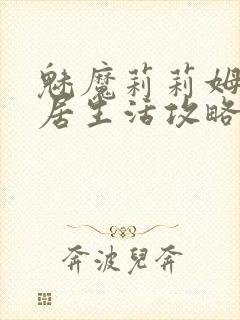 魅魔莉莉姆
居生活攻略
奔波兒奔